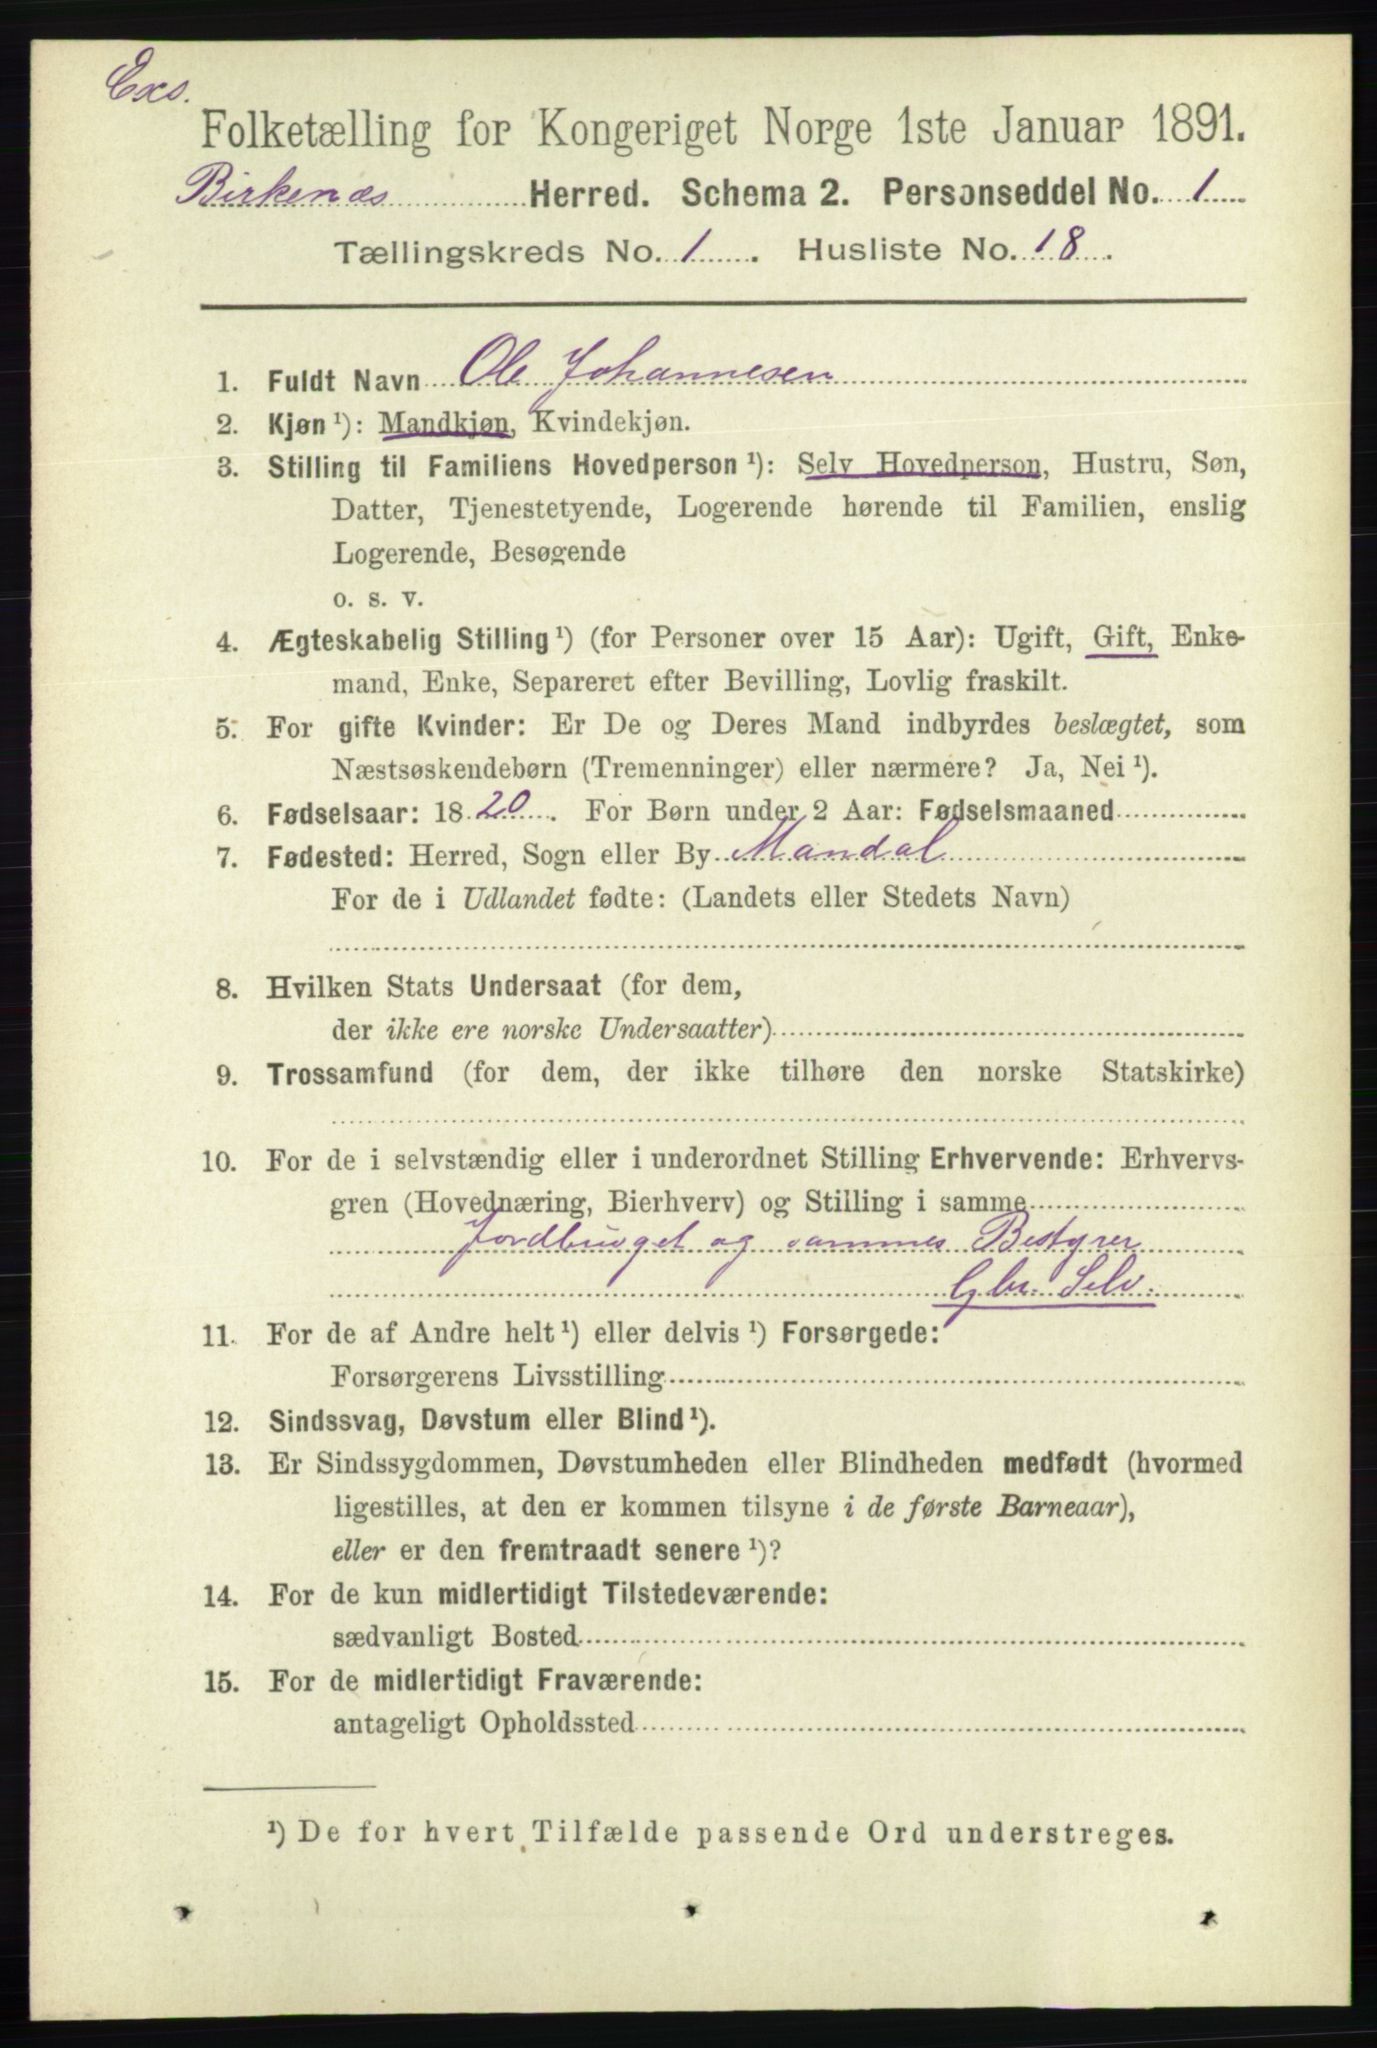 Exs.
Folketælling for Kongeriget Norge 1ste Januar 1891.
Birkenæs Herred. Schema 2. Personseddel No. 1
Tællingskreds No. 1. Husliste No. 18.
1. Fuldt Navn Ole Johannesen
2. Kjøn ¹): Mandkjøn, Kvindekjøn.
3. Stilling til Familiens Hovedperson ¹): Selv Hovedperson, Hustru, Søn,
Datter, Tjenestetyende, Logerende hørende til Familien, enslig
Logerende, Besøgende
o. s. v.
4. Ægteskabelig Stilling ¹) (for Personer over 15 Aar): Ugift, Gift, Enke-
mand, Enke, Separeret efter Bevilling, Lovlig fraskilt.
5. For gifte Kvinder: Er De og Deres Mand indbyrdes beslægtet, som
Næstsøskendebørn (Tremenninger) eller nærmere? Ja, Nei ¹).
6. Fødselsaar: 1820. For Børn under 2 Aar: Fødselsmaaned
7. Fødested: Herred, Sogn eller By Mandal
For de i Udlandet fødte: (Landets eller Stedets Navn)
8. Hvilken Stats Undersaat (for dem,
der ikke ere norske Undersaatter)
9. Trossamfund (for dem, der ikke tilhøre den norske Statskirke)
10. For de i selvstændig eller i underordnet Stilling Erhvervende: Erhvervs-
gren (Hovednæring, Bierhverv) og Stilling i samme
Jordbruget og sammes Bestyrer
Gbr. Selv.
11. For de af Andre helt ¹) eller delvis ¹) Forsørgede:
Forsørgerens Livsstilling
12. Sindssvag, Døvstum eller Blind ¹).
13. Er Sindssygdommen, Døvstumheden eller Blindheden medfødt (hvormed
ligestilles, at den er kommen tilsyne i de første Barneaar),
eller er den fremtraadt senere ¹)?
14. For de kun midlertidigt Tilstedeværende:
sædvanligt Bosted
15. For de midlertidigt Fraværende:
antageligt Opholdssted
¹) De for hvert Tilfælde passende Ord understreges.